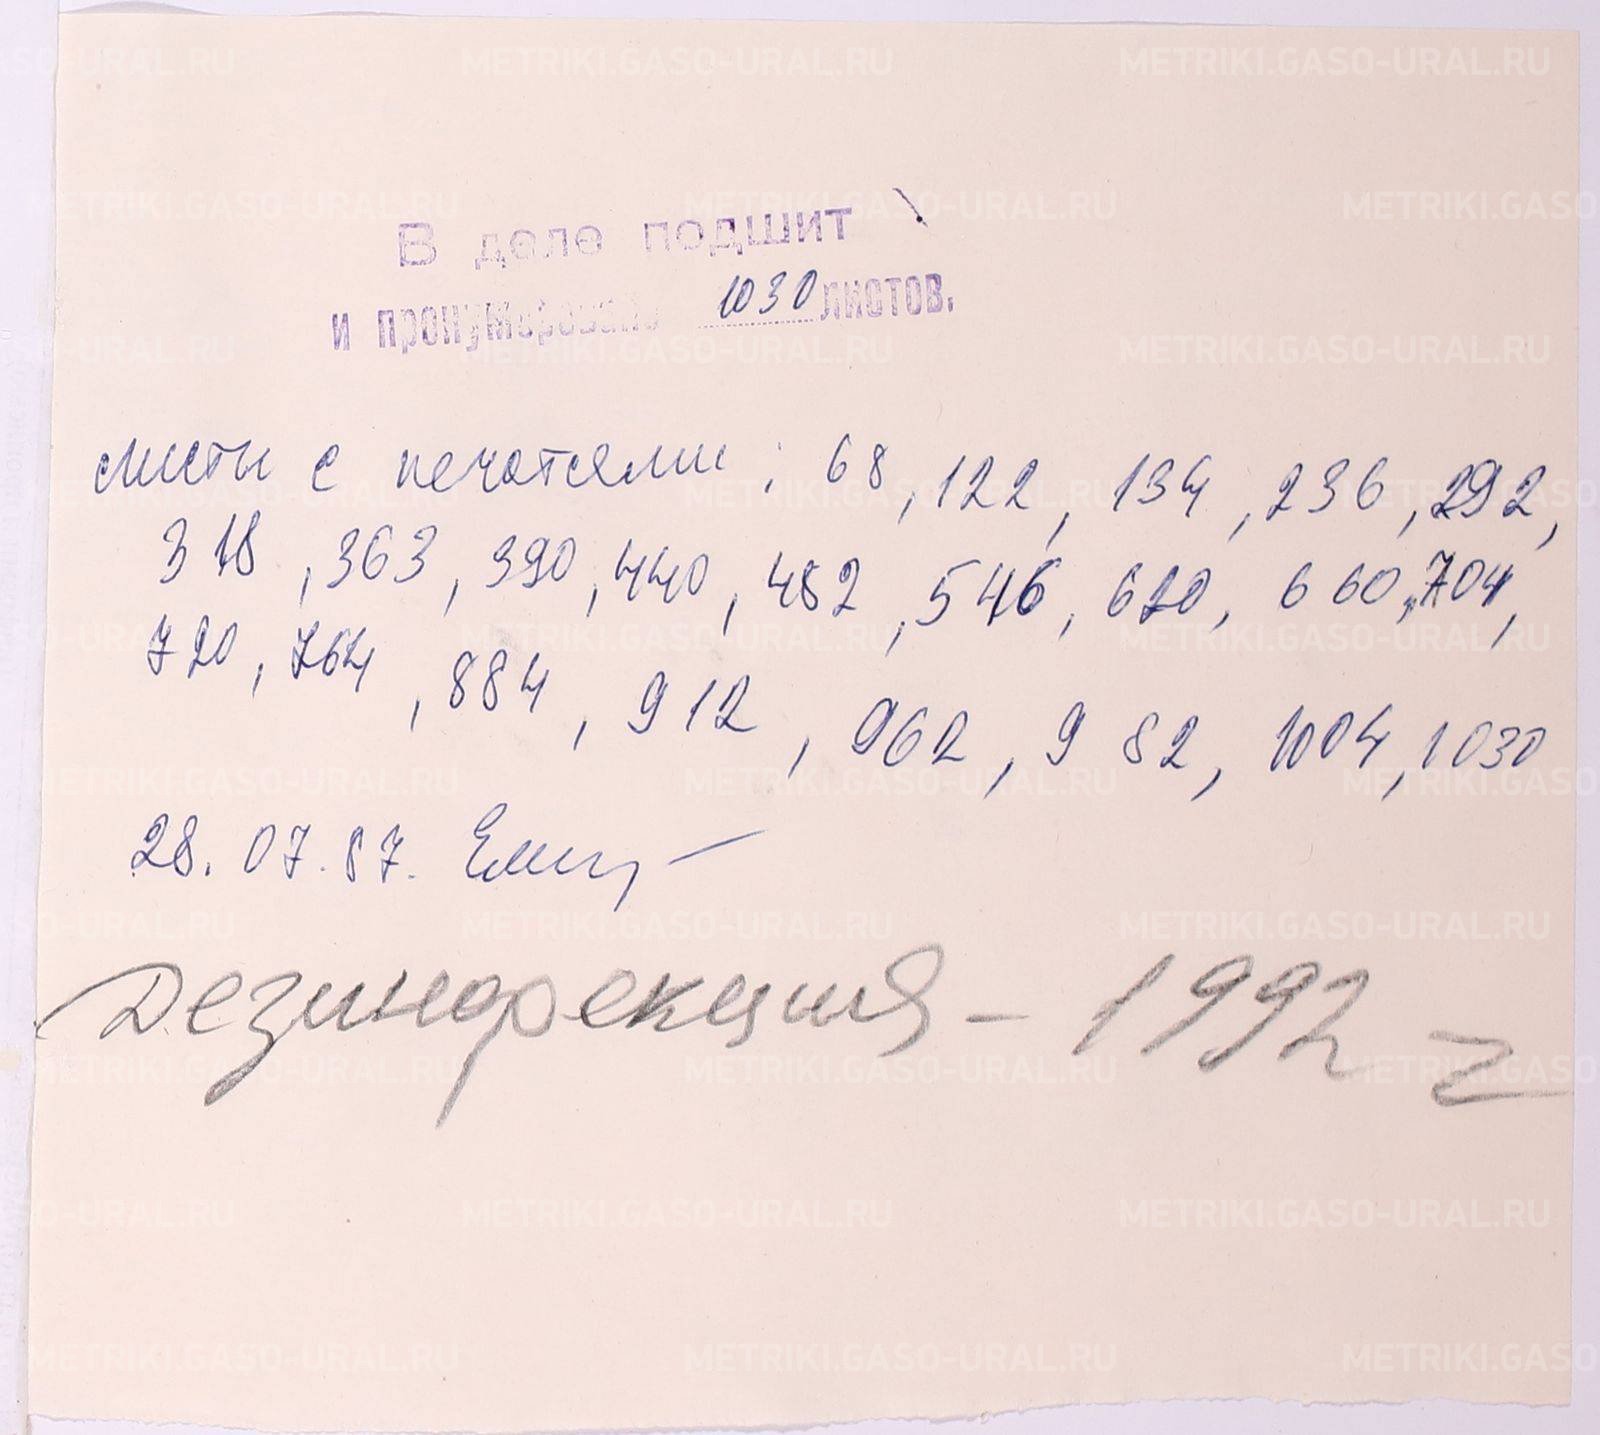 В деле подшит
и пронумеровано 1030 листов.
листы с печатями: 68, 122, 134, 236, 292,
318, 363, 390, 440, 482, 546, 620, 660, 704,
720, 764, 884, 912, 962, 982, 1004, 1030
28.07.87.
Дезинфекция - 1992 г
METRIKI.GASO-URAL.RU